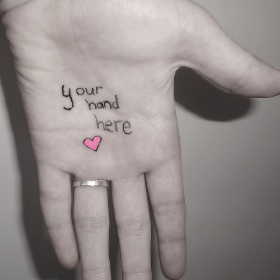 your
hand
here